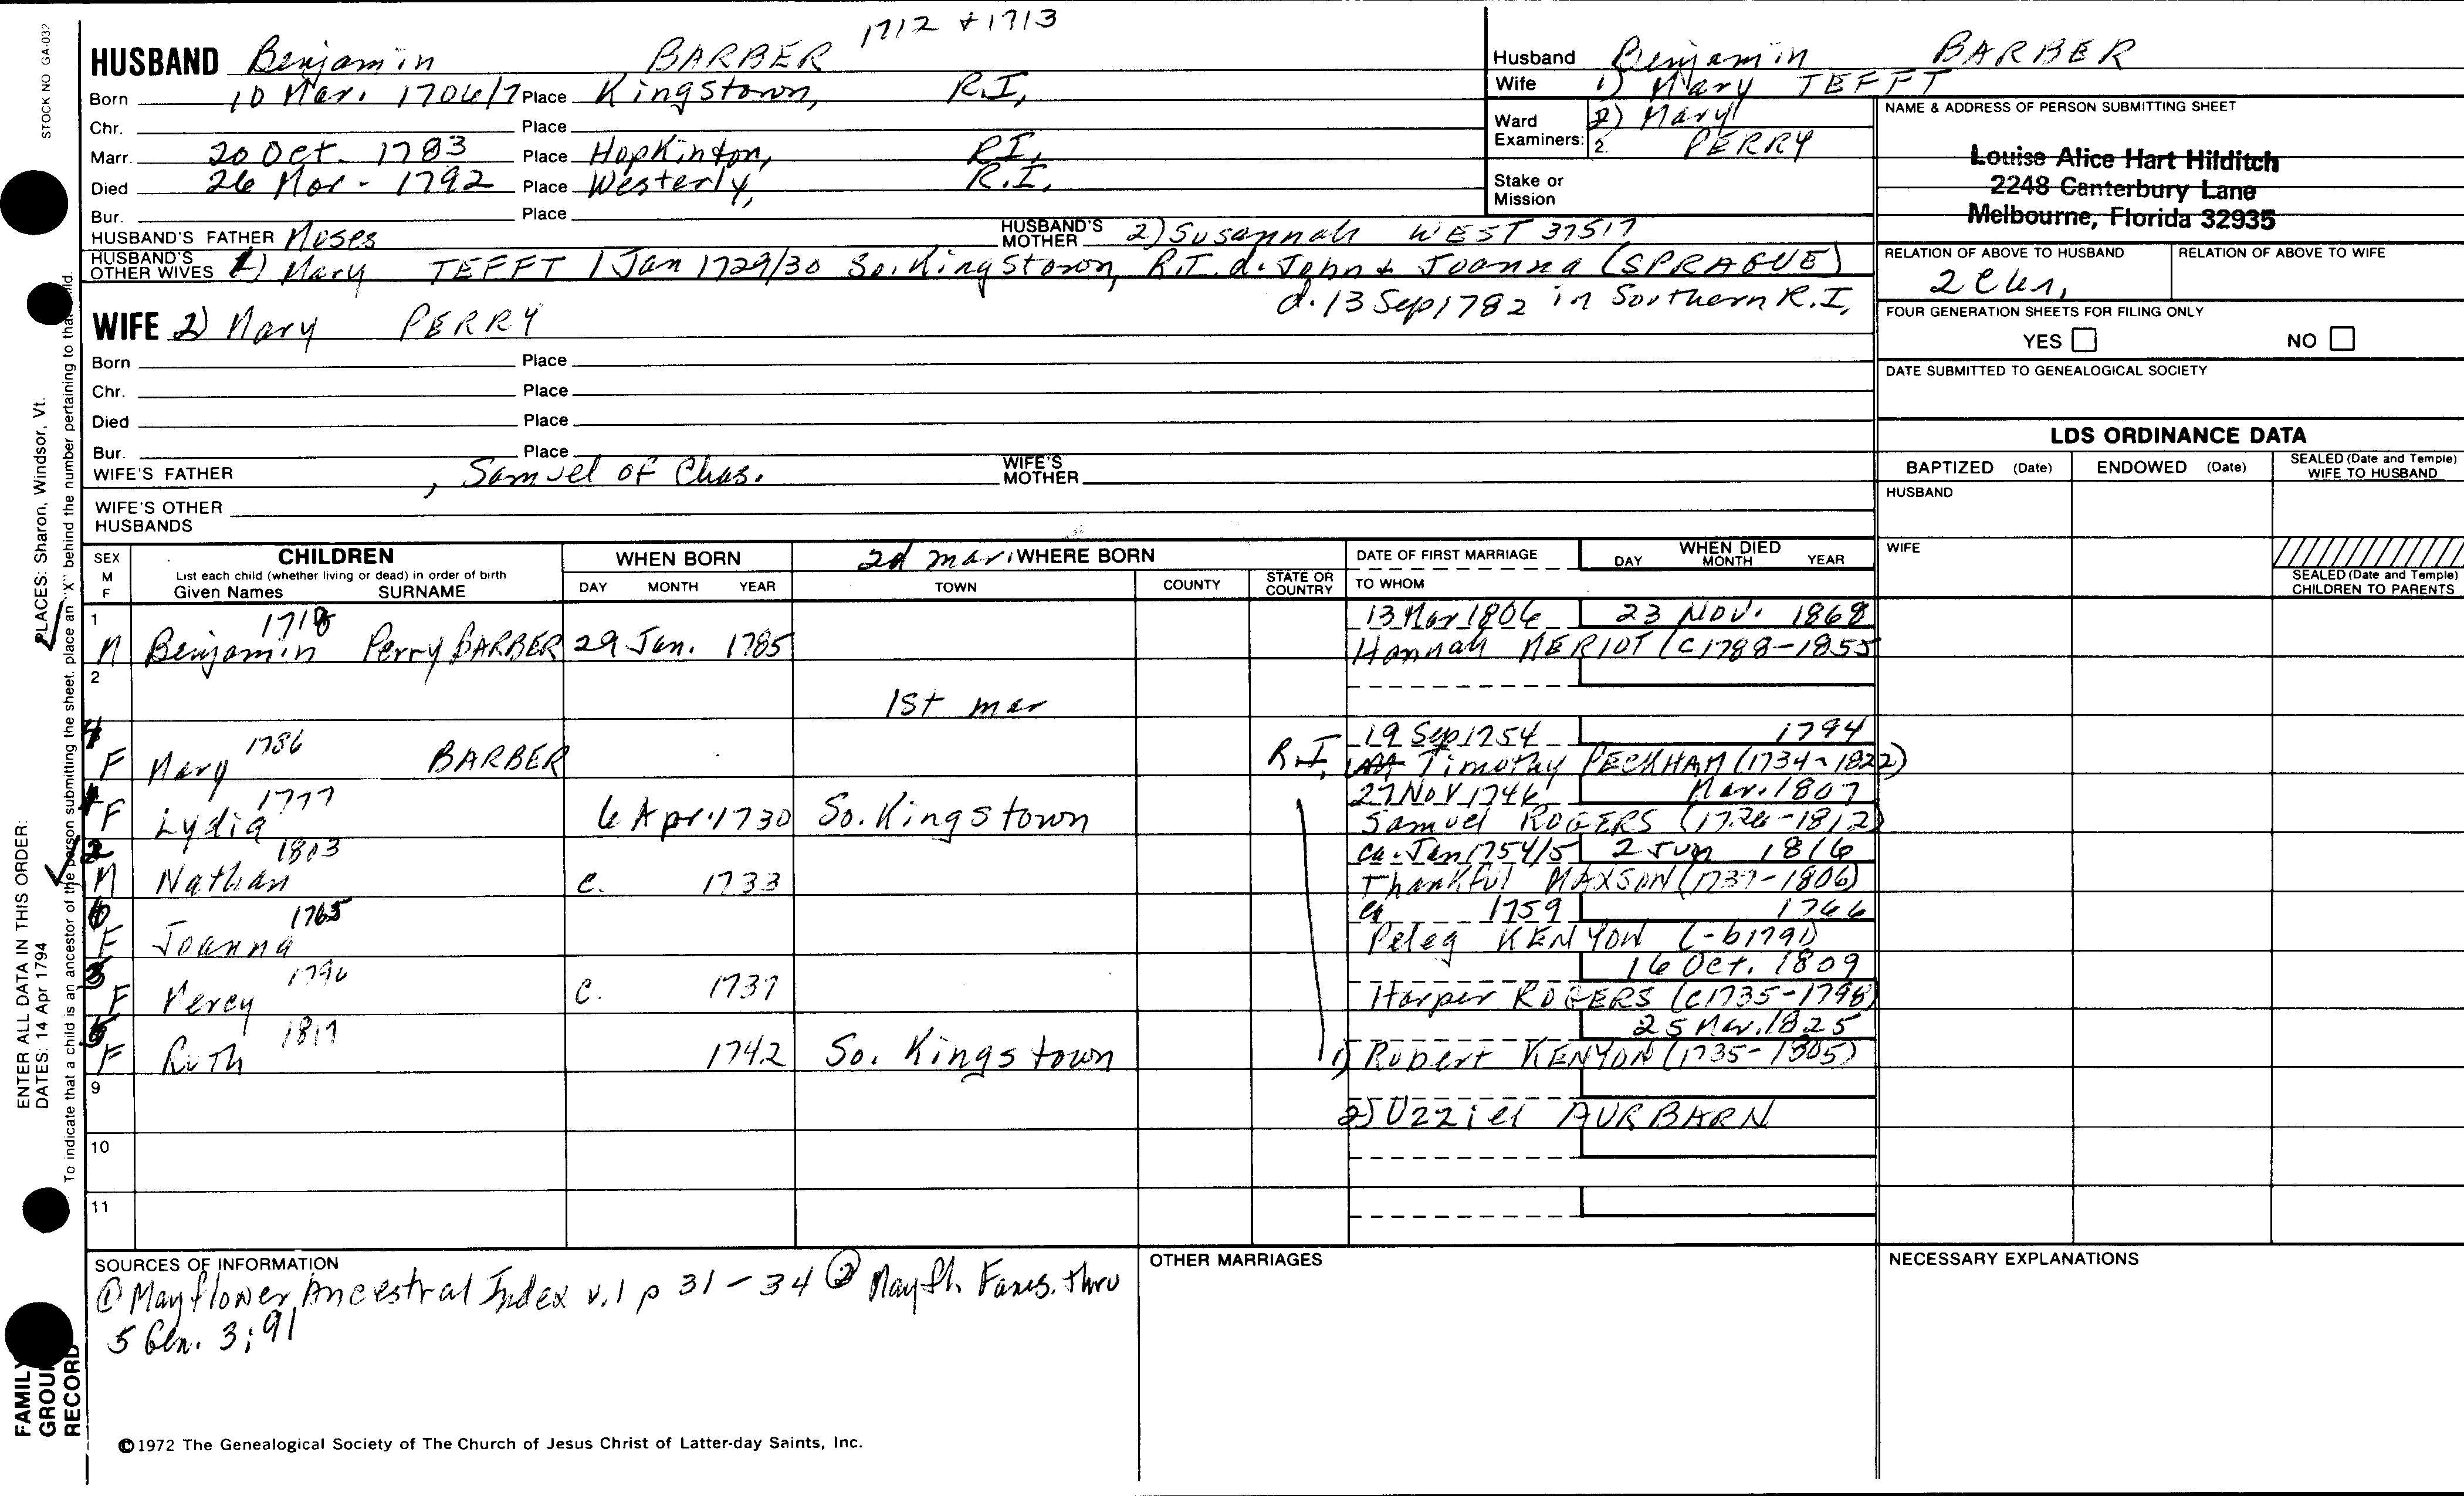 1712 + 1713
STOCK NO GA-032
HUSBAND Benjamin BARBER
Born 10 Mar. 1706/7 Place Kingstown, R.I,
Chr. Place
Marr. 20 Oct. 1783 Place Hopkinton, RI,
Died 26 Mar - 1792 Place Westerly, R.I.
Bur. Place
HUSBAND'S FATHER Moses HUSBAND'S MOTHER 2) Susannah WEST 37517
HUSBAND'S OTHER WIVES 1) Mary TEFFT 1 Jan 1729/30 So. Kingstown, R.I. d. John & Joanna (SPRAGUE)
d. 13 Sep 1782 in Southern R.I,
WIFE 2) Mary PERRY
Born Place
Chr. Place
Died Place
Bur. Place
WIFE'S FATHER , Samuel of Chas. WIFE'S MOTHER
WIFE'S OTHER HUSBANDS
Husband Benjamin BARBER
Wife 1) Mary TEFFT
Ward Examiners: 2) Mary
2. PERRY
Stake or Mission
NAME & ADDRESS OF PERSON SUBMITTING SHEET
Louise Alice Hart Hilditch
2248 Canterbury Lane
Melbourne, Florida 32935
RELATION OF ABOVE TO HUSBAND RELATION OF ABOVE TO WIFE
FOUR GENERATION SHEETS FOR FILING ONLY
YES NO
DATE SUBMITTED TO GENEALOGICAL SOCIETY
LDS ORDINANCE DATA
BAPTIZED (Date) ENDOWED (Date) SEALED (Date and Temple) WIFE TO HUSBAND
HUSBAND
WIFE
SEALED (Date and Temple) CHILDREN TO PARENTS
SEX M F
CHILDREN
List each child (whether living or dead) in order of birth
Given Names SURNAME
WHEN BORN
DAY MONTH YEAR
2d mar WHERE BORN
TOWN COUNTY STATE OR COUNTRY
DATE OF FIRST MARRIAGE
TO WHOM
WHEN DIED
DAY MONTH YEAR
1 1718 13 Mar 1806 23 Nov. 1868
M Benjamin Perry BARBER 29 Jan. 1785 Hannah MERIOT (c1788-1855
2
1st mar
4 1786 19 Sep 1754 1794
F Mary BARBER R.I, Timothy PECKHAM (1734-1822)
1 1777 27 Nov 1746 Mar. 1807
F Lydia 6 Apr. 1730 So. Kingstown Samuel ROGERS (1726-1812)
2 1803 ca. Jan 1754/5 2 Jun 1816
M Nathan c. 1733 Thankful MAXSON (1737-1806)
6 1765 ca 1759 1766
F Joanna Peleg KENYON (-b1791)
3 1796 16 Oct. 1809
F Mercy c. 1737 Harper ROGERS (c1735-1798)
5 1817 25 Mar. 1825
F Ruth 1742 So. Kingstown 1) Robert KENYON (1735-1805)
9
2) Uzziel AURBARN
10
11
SOURCES OF INFORMATION
① Mayflower Ancestral Index v.1 p 31-34 ② Mayfl. Fams. thru
5 Gen. 3:91
OTHER MARRIAGES
NECESSARY EXPLANATIONS
©1972 The Genealogical Society of The Church of Jesus Christ of Latter-day Saints, Inc.
FAMILY GROUP RECORD
ENTER ALL DATA IN THIS ORDER:
DATES: 14 Apr 1794
PLACES: Sharon, Windsor, Vt.
To indicate that a child is an ancestor of the person submitting the sheet, place an "X" behind the number pertaining to that child.